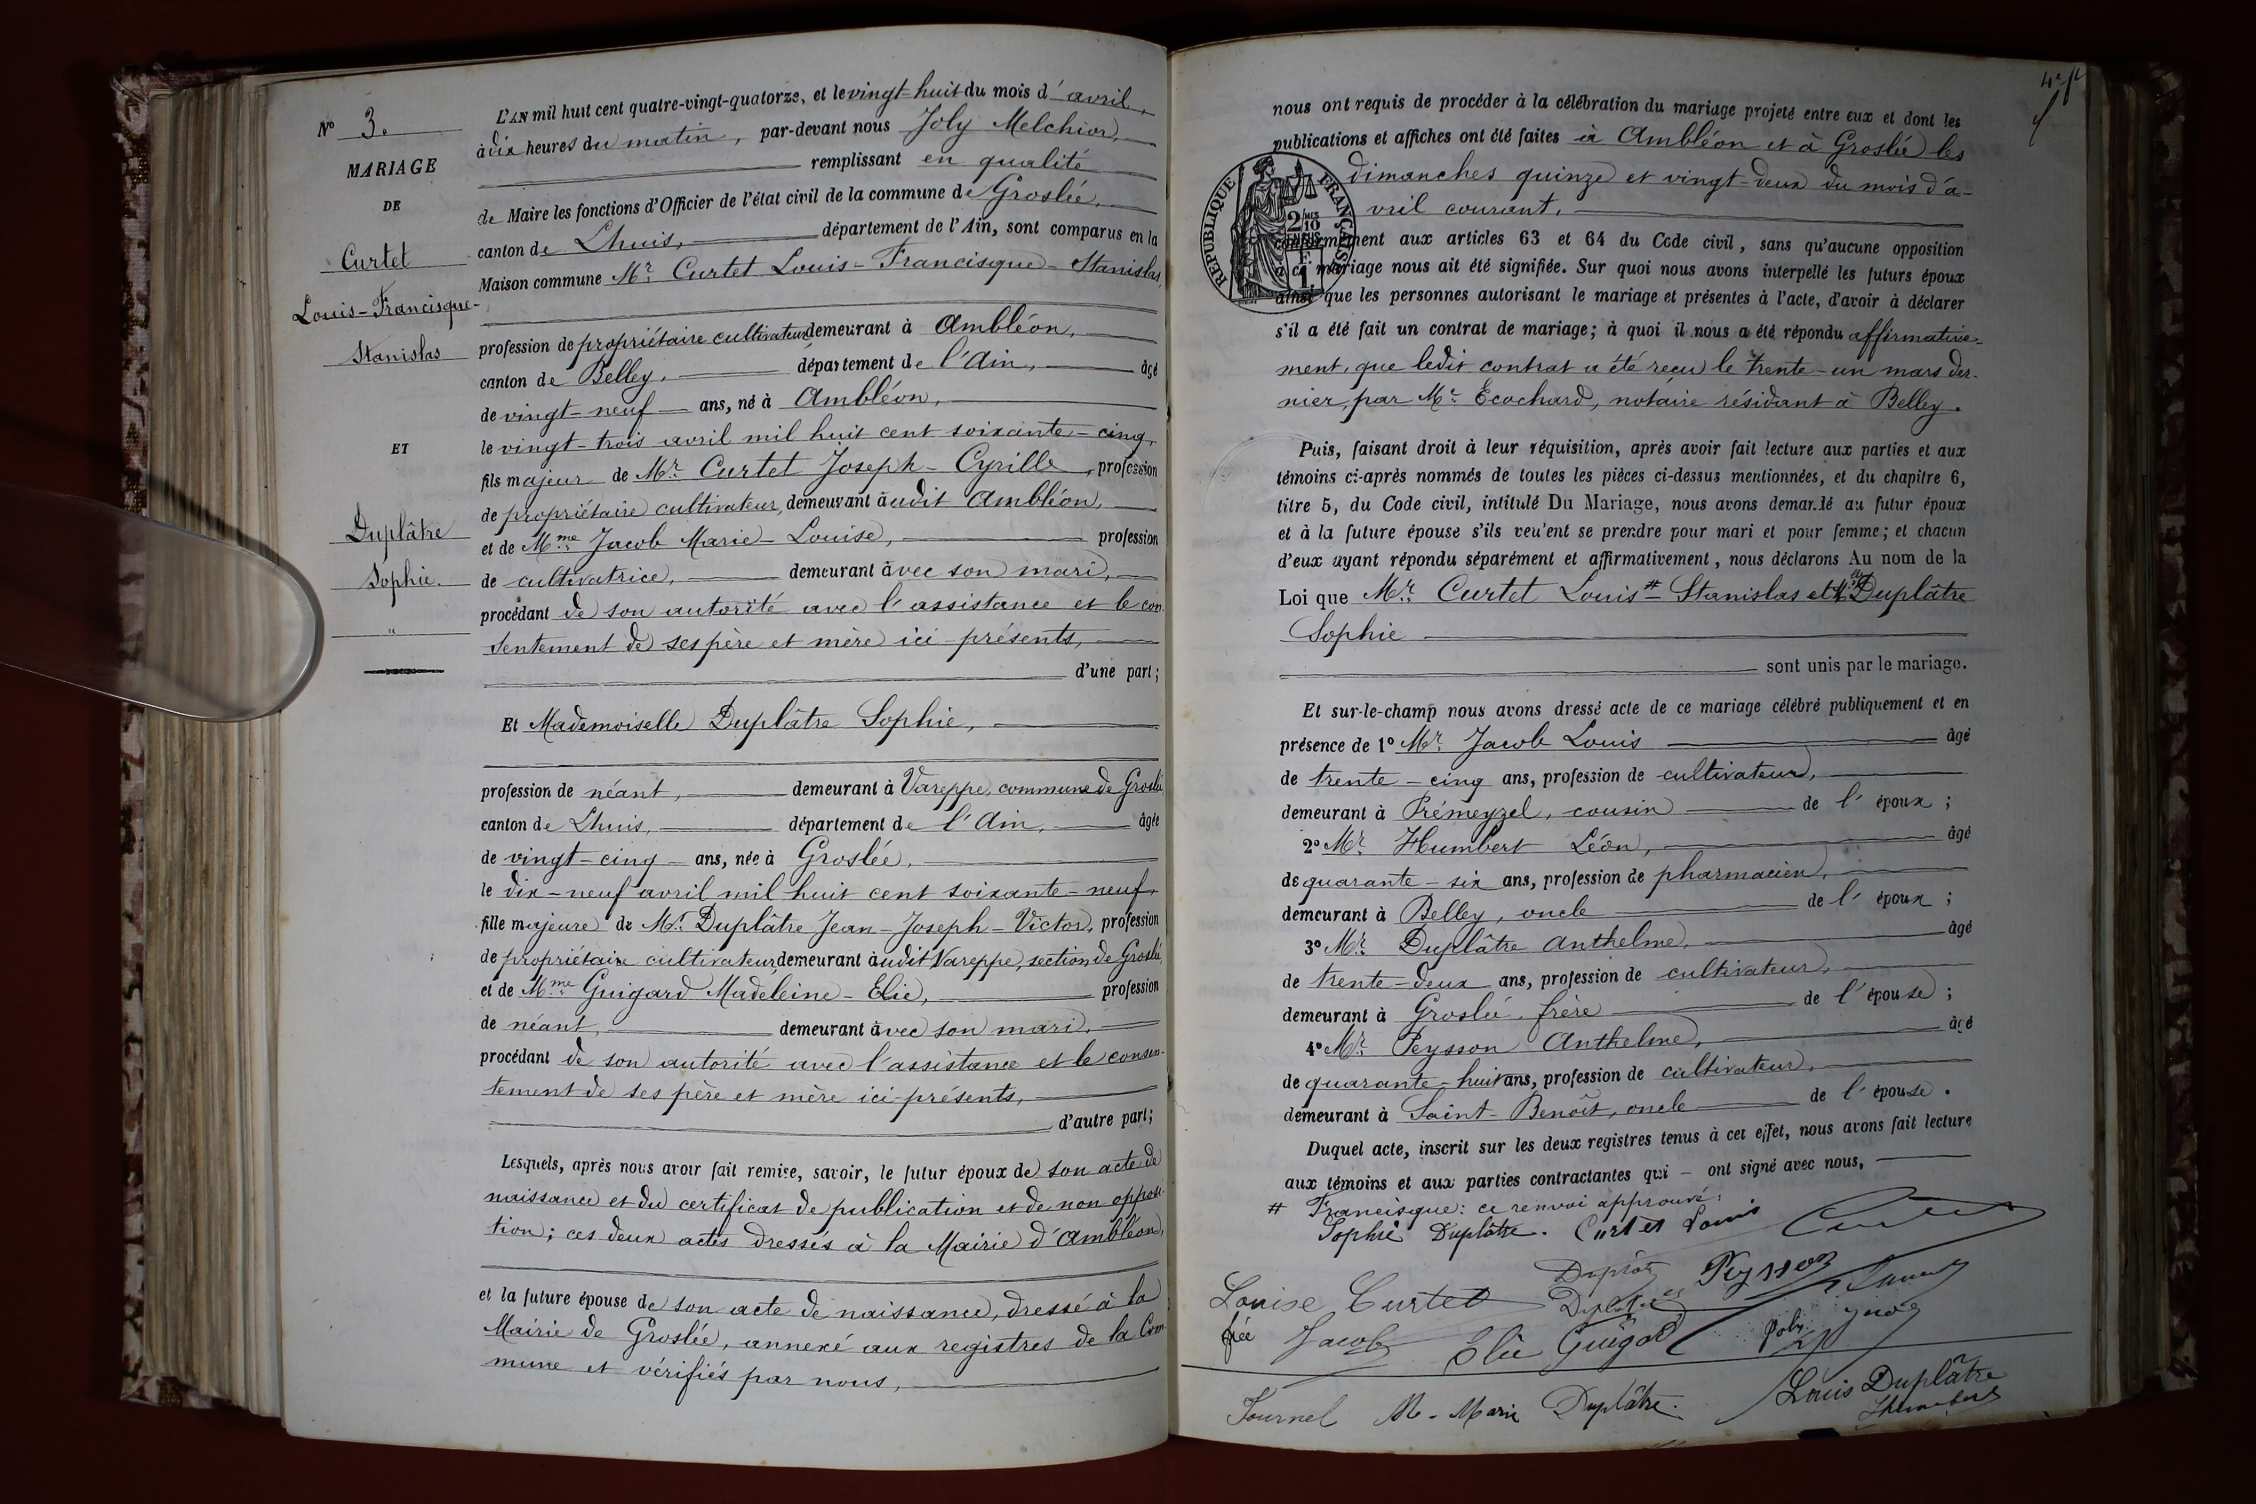 N° 3.
MARIAGE
DE
Curtet
Louis-Francisque-
Stanislas
ET
Duplâtre
Sophie.
"
L'AN mil huit cent quatre-vingt-quatorze, et le vingt-huit du mois d'avril,
à dix heures du matin, par-devant nous Joly Melchior,
remplissant en qualité
de Maire les fonctions d'Officier de l'état civil de la commune de Groslée,
canton de Lhuis, département de l'Ain, sont comparus en la
Maison commune Mr. Curtet Louis-Francisque-Stanislas,
profession de propriétaire cultivateur demeurant à Ambléon,
canton de Belley, département de l'Ain, âgé
de vingt-neuf ans, né à Ambléon,
le vingt-trois avril mil huit cent soixante-cinq,
fils majeur de Mr. Curtet Joseph-Cyrille, profession
de propriétaire cultivateur, demeurant àudit Ambléon,
et de Mme Jacob Marie-Louise, profession
de cultivatrice, demeurant àvec son mari,
procédant de son autorité avec l'assistance et le con-
sentement de ses père et mère ici présents,
d'une part;
Et Mademoiselle Duplâtre Sophie,
profession de néant, demeurant à Vareppe, commune de Groslée,
canton de Lhuis, département de l'Ain, âgée
de vingt-cinq ans, née à Groslée,
le dix-neuf avril mil huit cent soixante-neuf,
fille majeure de Mr. Duplâtre Jean-Joseph-Victor, profession
de propriétaire cultivateur demeurant àudit Vareppe, section de Groslée,
et de Mme Guigard Madeleine-Elie, profession
de néant, demeurant àvec son mari,
procédant de son autorité avec l'assistance et le consen-
tement de ses père et mère ici présents,
d'autre part;
Lesquels, après nous avoir fait remise, savoir, le futur époux de son acte de
naissance et du certificat de publication et de non opposi-
tion; ces deux actes dressés à la Mairie d'Ambléon,
et la future épouse de son acte de naissance, dressé à la
Mairie de Groslée, annexé aux registres de la Com-
mune et vérifiés par nous,
nous ont requis de procéder à la célébration du mariage projeté entre eux et dont les
publications et affiches ont été faites à Ambléon et à Groslée les
dimanches quinze et vingt-deux du mois d'a-
vril courant,
RÉPUBLIQUE FRANÇAISE
2/10
1 F.
conformément aux articles 63 et 64 du Code civil, sans qu'aucune opposition
à ce mariage nous ait été signifiée. Sur quoi nous avons interpellé les futurs époux
ainsi que les personnes autorisant le mariage et présentes à l'acte, d'avoir à déclarer
s'il a été fait un contrat de mariage; à quoi il nous a été répondu affirmative-
ment, que ledit contrat a été reçu le trente-un mars der-
nier, par Me Ecochard, notaire résidant à Belley.
Puis, faisant droit à leur réquisition, après avoir fait lecture aux parties et aux
témoins ci-après nommés de toutes les pièces ci-dessus mentionnées, et du chapitre 6,
titre 5, du Code civil, intitulé Du Mariage, nous avons demandé au futur époux
et à la future épouse s'ils veulent se prendre pour mari et pour femme; et chacun
d'eux ayant répondu séparément et affirmativement, nous déclarons Au nom de la
Loi que Mr. Curtet Louis # Stanislas et Mlle Duplâtre
Sophie
sont unis par le mariage.
Et sur-le-champ nous avons dressé acte de ce mariage célébré publiquement et en
présence de 1° Mr. Jacob Louis âgé
de trente-cinq ans, profession de cultivateur,
demeurant à Prémeyzel, cousin de l'époux;
2° Mr. Humbert Léon, âgé
de quarante-six ans, profession de pharmacien,
demeurant à Belley, oncle de l'époux;
3° Mr. Duplâtre Anthelme, âgé
de trente-deux ans, profession de cultivateur,
demeurant à Groslée, frère de l'épouse;
4° Mr. Peysson Anthelme, âgé
de quarante-huit ans, profession de cultivateur,
demeurant à Saint-Benoît, oncle de l'épouse.
Duquel acte, inscrit sur les deux registres tenus à cet effet, nous avons fait lecture
aux témoins et aux parties contractantes qui ont signé avec nous,
# Francisque: ce renvoi approuvé:
Sophie Duplâtre. Curtet Louis Curtet
Duplâtre Peysson
Louise Curtet Duplâtre
née Jacob Elie Guigard Joly
Fournel M. Marie Duplâtre. Louis Duplâtre